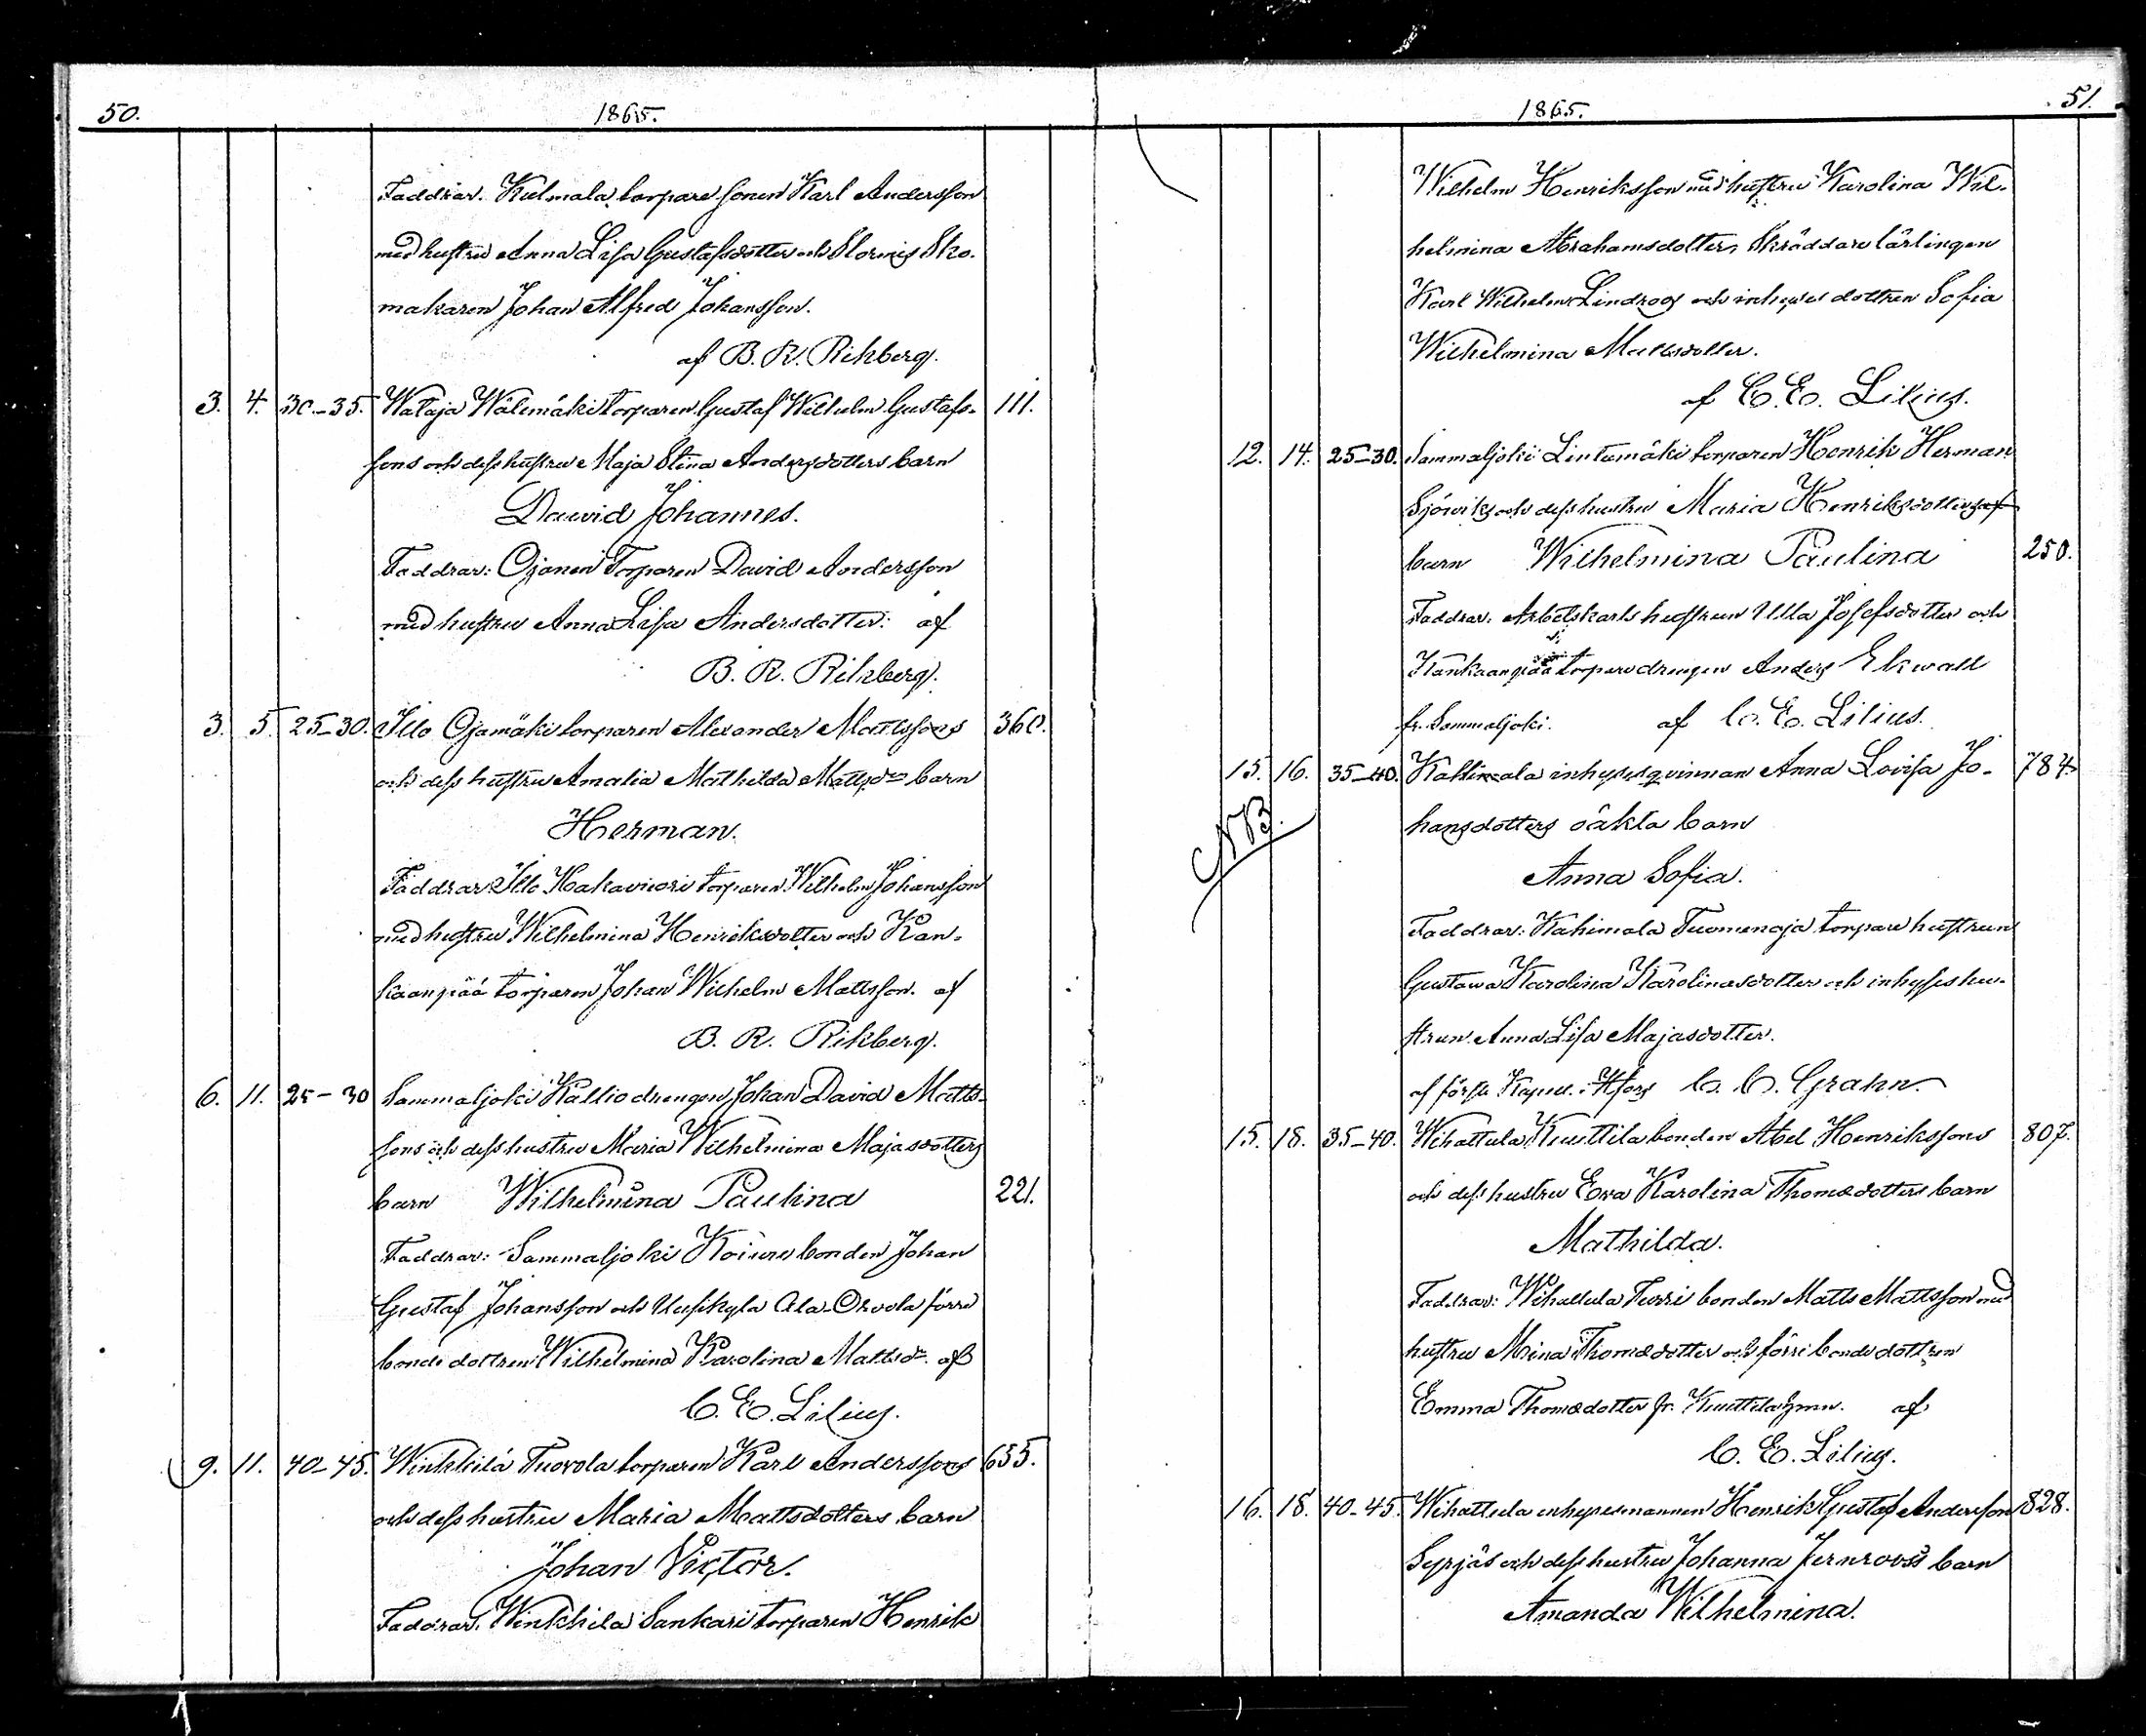 50. 1865.
Faddrar. Kulmala torpare sonen Karl Andersson
med hustru Anna Lisa Gustafsdotter och Stormis Sko-
makaren Johan Alfred Johansson.
af B. R. Rikberg.
3. 4. 30-35. Wataja Wälimäki torparen Gustaf Wilhelm Gustafs- 111.
sons och dess hustru Maja Stina Andersdotters barn
David Johannes.
Faddrar: Ojanen Torparen David Andersson
med hustru Anna Lisa Andersdotter: af
B. R. Rikberg.
3. 5. 25-30. Illo Ojamäki torparen Alexander Mattssons 360.
och dess hustru Amalia Mathilda Mattsdr barn
Herman.
Faddrar: Illo Hakavuori torparen Wilhelm Johansson
med hustru Wilhelmina Henriksdotter och Kan-
kaanpää torparen Johan Wilhelm Mattsson. af
B. R. Rikberg.
6. 11. 25-30 Sammaljoki Kallio drengen Johan David Matts-
sons och dess hustru Maria Wilhelmina Majasdotters
barn Wilhelmina Paulina 221.
Faddrar: Sammaljoki bonden Johan
Gustaf Johansson och Uusikyla Ala-Orvola förre
bonde dottren Wilhelmina Karolina Mattsdr. af
C. E. Lilius.
9. 11. 40-45. Winkkilä Tuorola torparen Karl Anderssons 655.
och dess hustru Maria Mattsdotters barn
Johan Victor.
Faddrar. Winkkila Sankari torparen Henrik
1865. 51.
Wilhelm Henriksson med hustru Karolina Wil-
helmina Abrahamsdotter, Skräddare lärlingen
Karl Wilhelm Lindroos och inhyses dottren Sofia
Wilhelmina Mattsdotter.
af C. E. Lilius.
12. 14. 25-30. Sammaljoki Lintumäki torparen Henrik Herman
Sjöviks och dess hustru Maria Henriksdotters
barn Wilhelmina Paulina 250.
Faddrar: Arbetskarls hustrun Ulla Josefsdotter och
Kankaanpää torparedrengen Anders Ekwall
fr. Sammaljoki. af C. E. Lilius.
15. 16. 35-40. inhysesqvinnan Anna Lovisa Jo- 784.
NB.
hansdotters oäkta barn
Anna Sofia.
Faddrar: Kahimala Tuomenoja torpare hustrun
Gustawa Karolina Karolinasdotter och inhyses hu-
strun Anna Lisa Majasdotter.
af förste Kapell. i Hfors C. C. Grahn.
15. 18. 35-40. Wihattula Kuuttila bonden Abel Henrikssons 807.
och dess hustru Ewa Karolina Thomædotters barn
Mathilda.
Faddrar: Wihattula Turri bonden Matts Mattsson med
hustru Mina Thomædotter och förre bonde dottren
Emma Thomædotter fr. Kuuttila hmn. af
C. E. Lilius.
16. 18. 40-45. Wihattula inhysesmannen Henrik Gustaf Andersson 828.
Syrjäs och dess hustru Johanna Jernroos's barn
Amanda Wilhelmina.